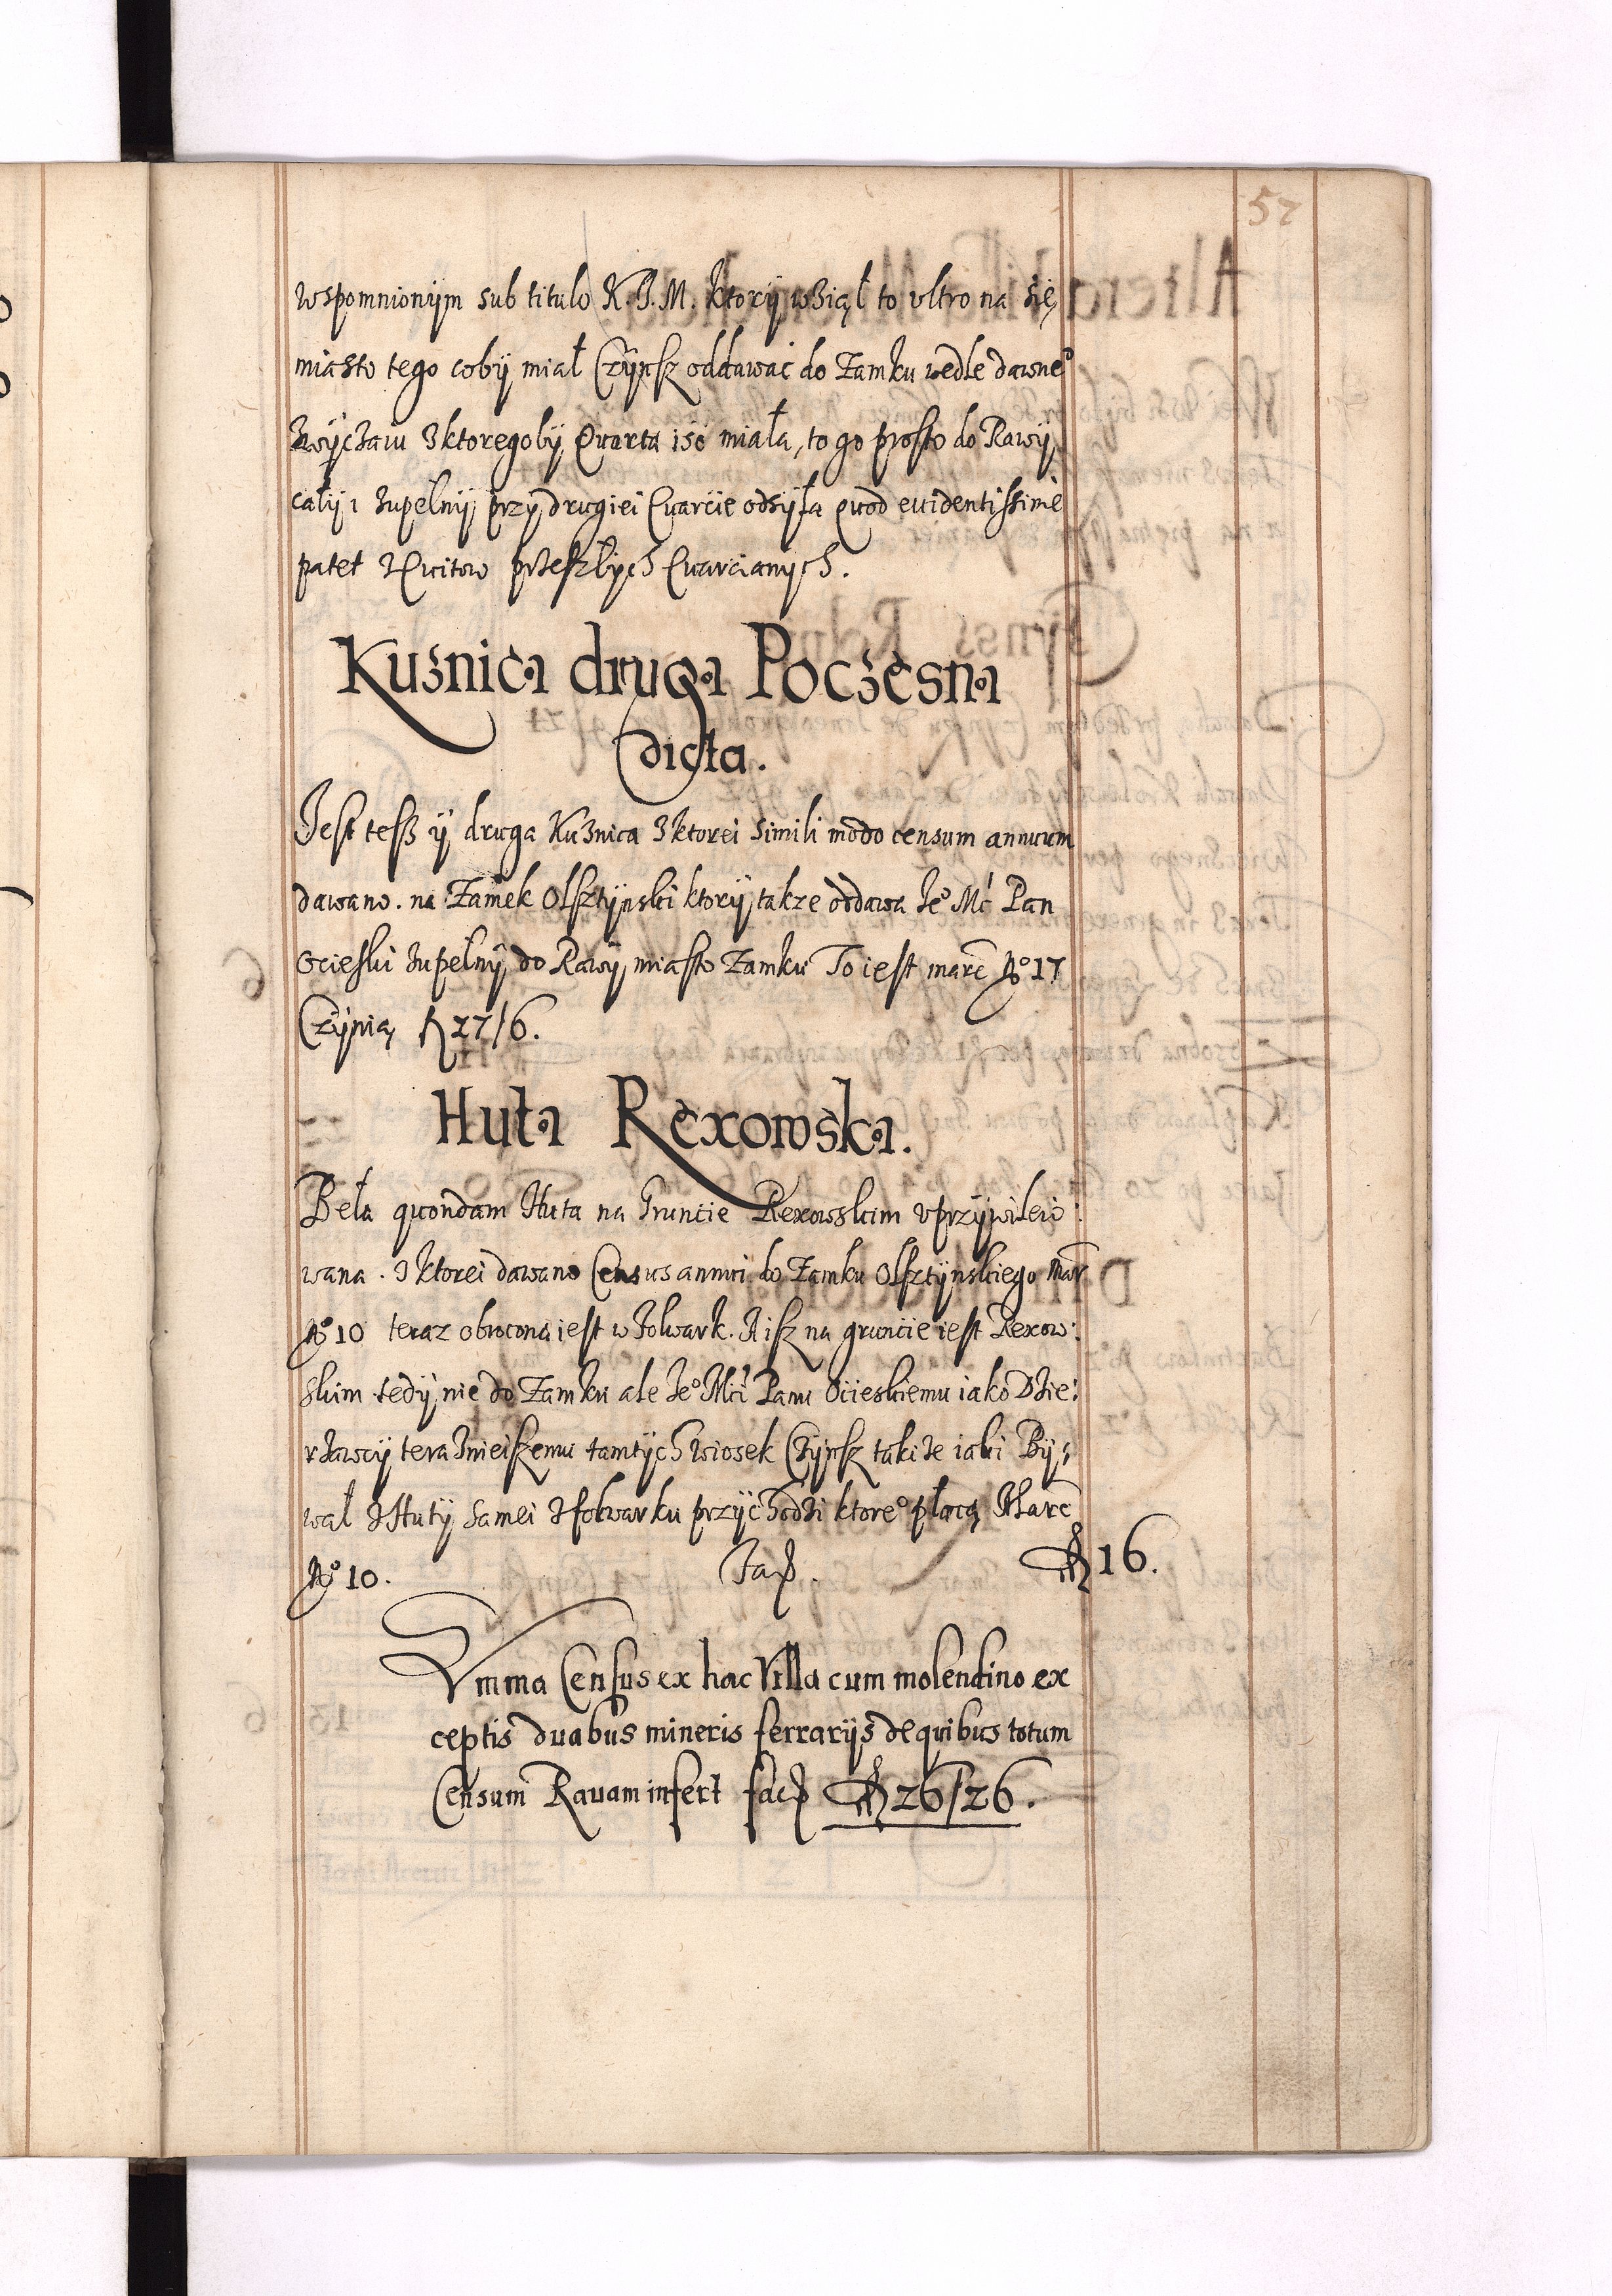 57
wspomnionym sub titulo K. J. M. ktory wziął to vltro na się
miasto tego coby miał Czynsz oddawać do Zamku wedle dawne°
zwyczaiu z ktoregoby Quarta iść miała, to go prosto do Rawy
cały i zupełny przy drugiei Quarcie odsyła quod euidentissime
patet z Quitow przeszłych Quarcianych.
Kuźnica druga Poczesna
dicta.
Jest tesz y druga Kuźnica z ktorei simili modo censum annuum
dawano. na Zamek Olsztynski ktory takze oddawa Je° Mć Pan
Ocieski zupełny do Rawy miasto Zamku To iest marc N° 17
Czynią ƒ 27/6.
Huta Rexowska.
Beła quondam Huta na Gruncie Rexowskim vprzywileio:
wana. z ktorei dawano Census annui do Zamku Olsztynskiego Marc
N° 10 teraz obrocona iest w Folwark. A isz na gruncie iest Rexow:
skim tedy nie do Zamku ale Je° Mći Panu Ocieskiemu iako Dzie:
rzawcy teraznieiszemu tamtych wiosek Czynsz takize iaki By:
wał z Huty samei z folwarku przychodzi ktore° płacą Marc
N° 10. Facit. ƒ 16.
Summa Census ex hac Villa cum molendino ex
ceptis duabus mineris ferrarijs de quibus totum
Censum Rauam infert facit ƒ 26/26.